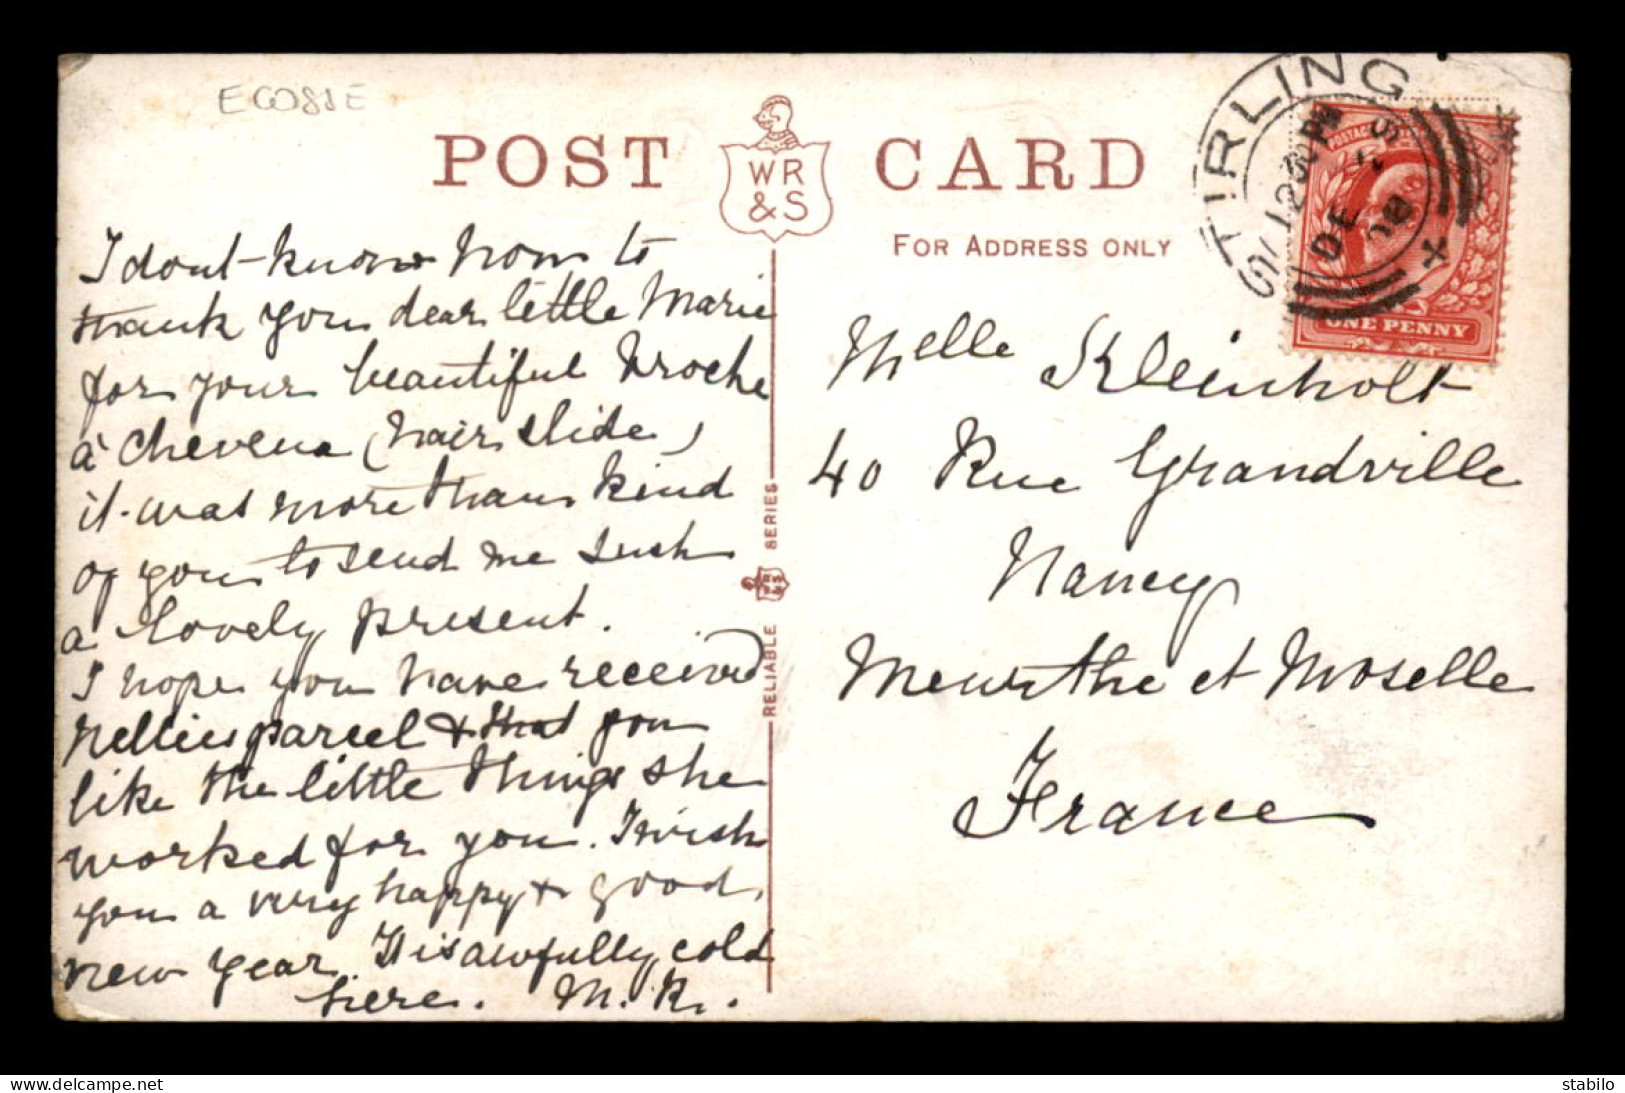 ECOSSE
POST CARD
WR
&S
FOR ADDRESS ONLY
STIRLING
12 30 PM
DE
08
ONE PENNY
I dont know how to
thank you dear little Marie
for your beautiful broche
à cheveux (hair slide)
it was more than kind
of you to send me such
a lovely present.
I hope you have received
Nellies parcel & that you
like the little things she
worked for you. I wish
you a very happy & good
new year. It is awfully cold
here. M. R.
RELIABLE SERIES
Melle Kleinholt
40 Rue Grandville
Nancy
Meurthe et Moselle
France
delcampe.net
stabilo